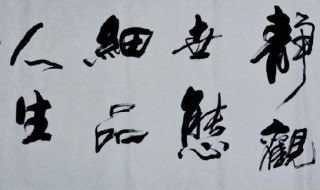 靜觀
世態
細品
人生